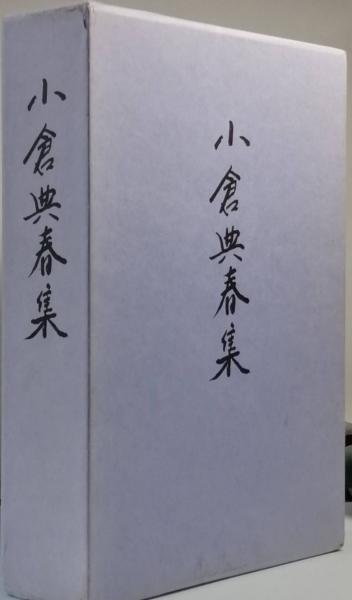 小倉典春集
小倉典春集